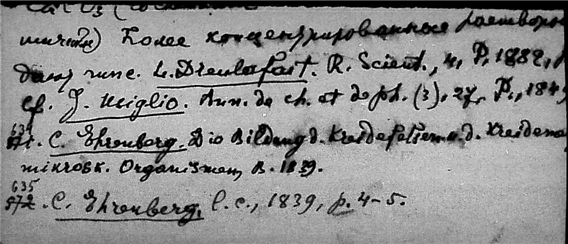 CaCO3 (
Более концентрированные растворы
дают гипс. L. Dieulafait. R. Scient., 4, P. 1882,
cf. J. Usiglio. Ann. de ch. et de ph. (3), 27, P., 1849
634
571. C. Ehrenberg. Die Bildung d. Kreidefelsen u. d. Kreidemer
mikrosk. Organismen, B. 1839.
635
572. C. Ehrenberg, l. c., 1839, p. 4-5.